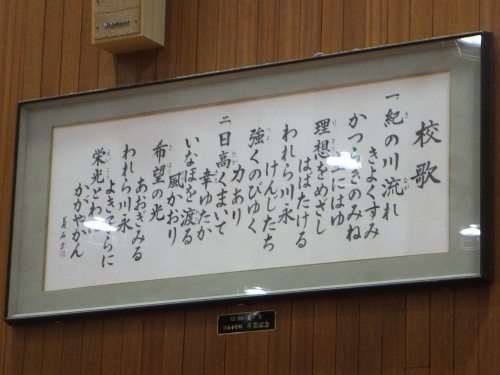 校歌
一、紀の川流れ
きよくすみ
かつらぎのみね
上にはゆ
理想をめざし
はばたける
われら川永
けんじたち
強くのびゆく
力あり
二、日高くまいて
幸ゆたか
いなほを渡る
風かおり
希望の光
あおぎみる
われら川永
よき らに
栄光とわ
かがやかん
卒業記念